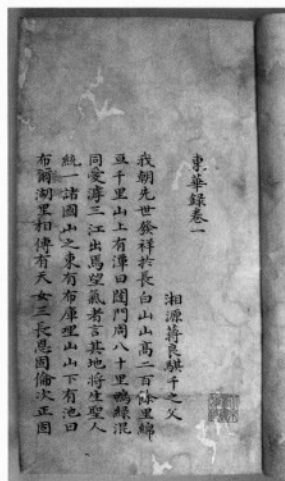 東華録卷一
湘源蒋良騏千之父
我朝先世發祥扵長白山山高二百餘里綿
亘千里山上有潭曰闥門周八十里鴨緑混
同愛滹三江出焉望氣者言其地将生聖人
統一諸國山之東有布庫哩山山下有池曰
布爾湖里相傳有天女三長恩固倫次正固